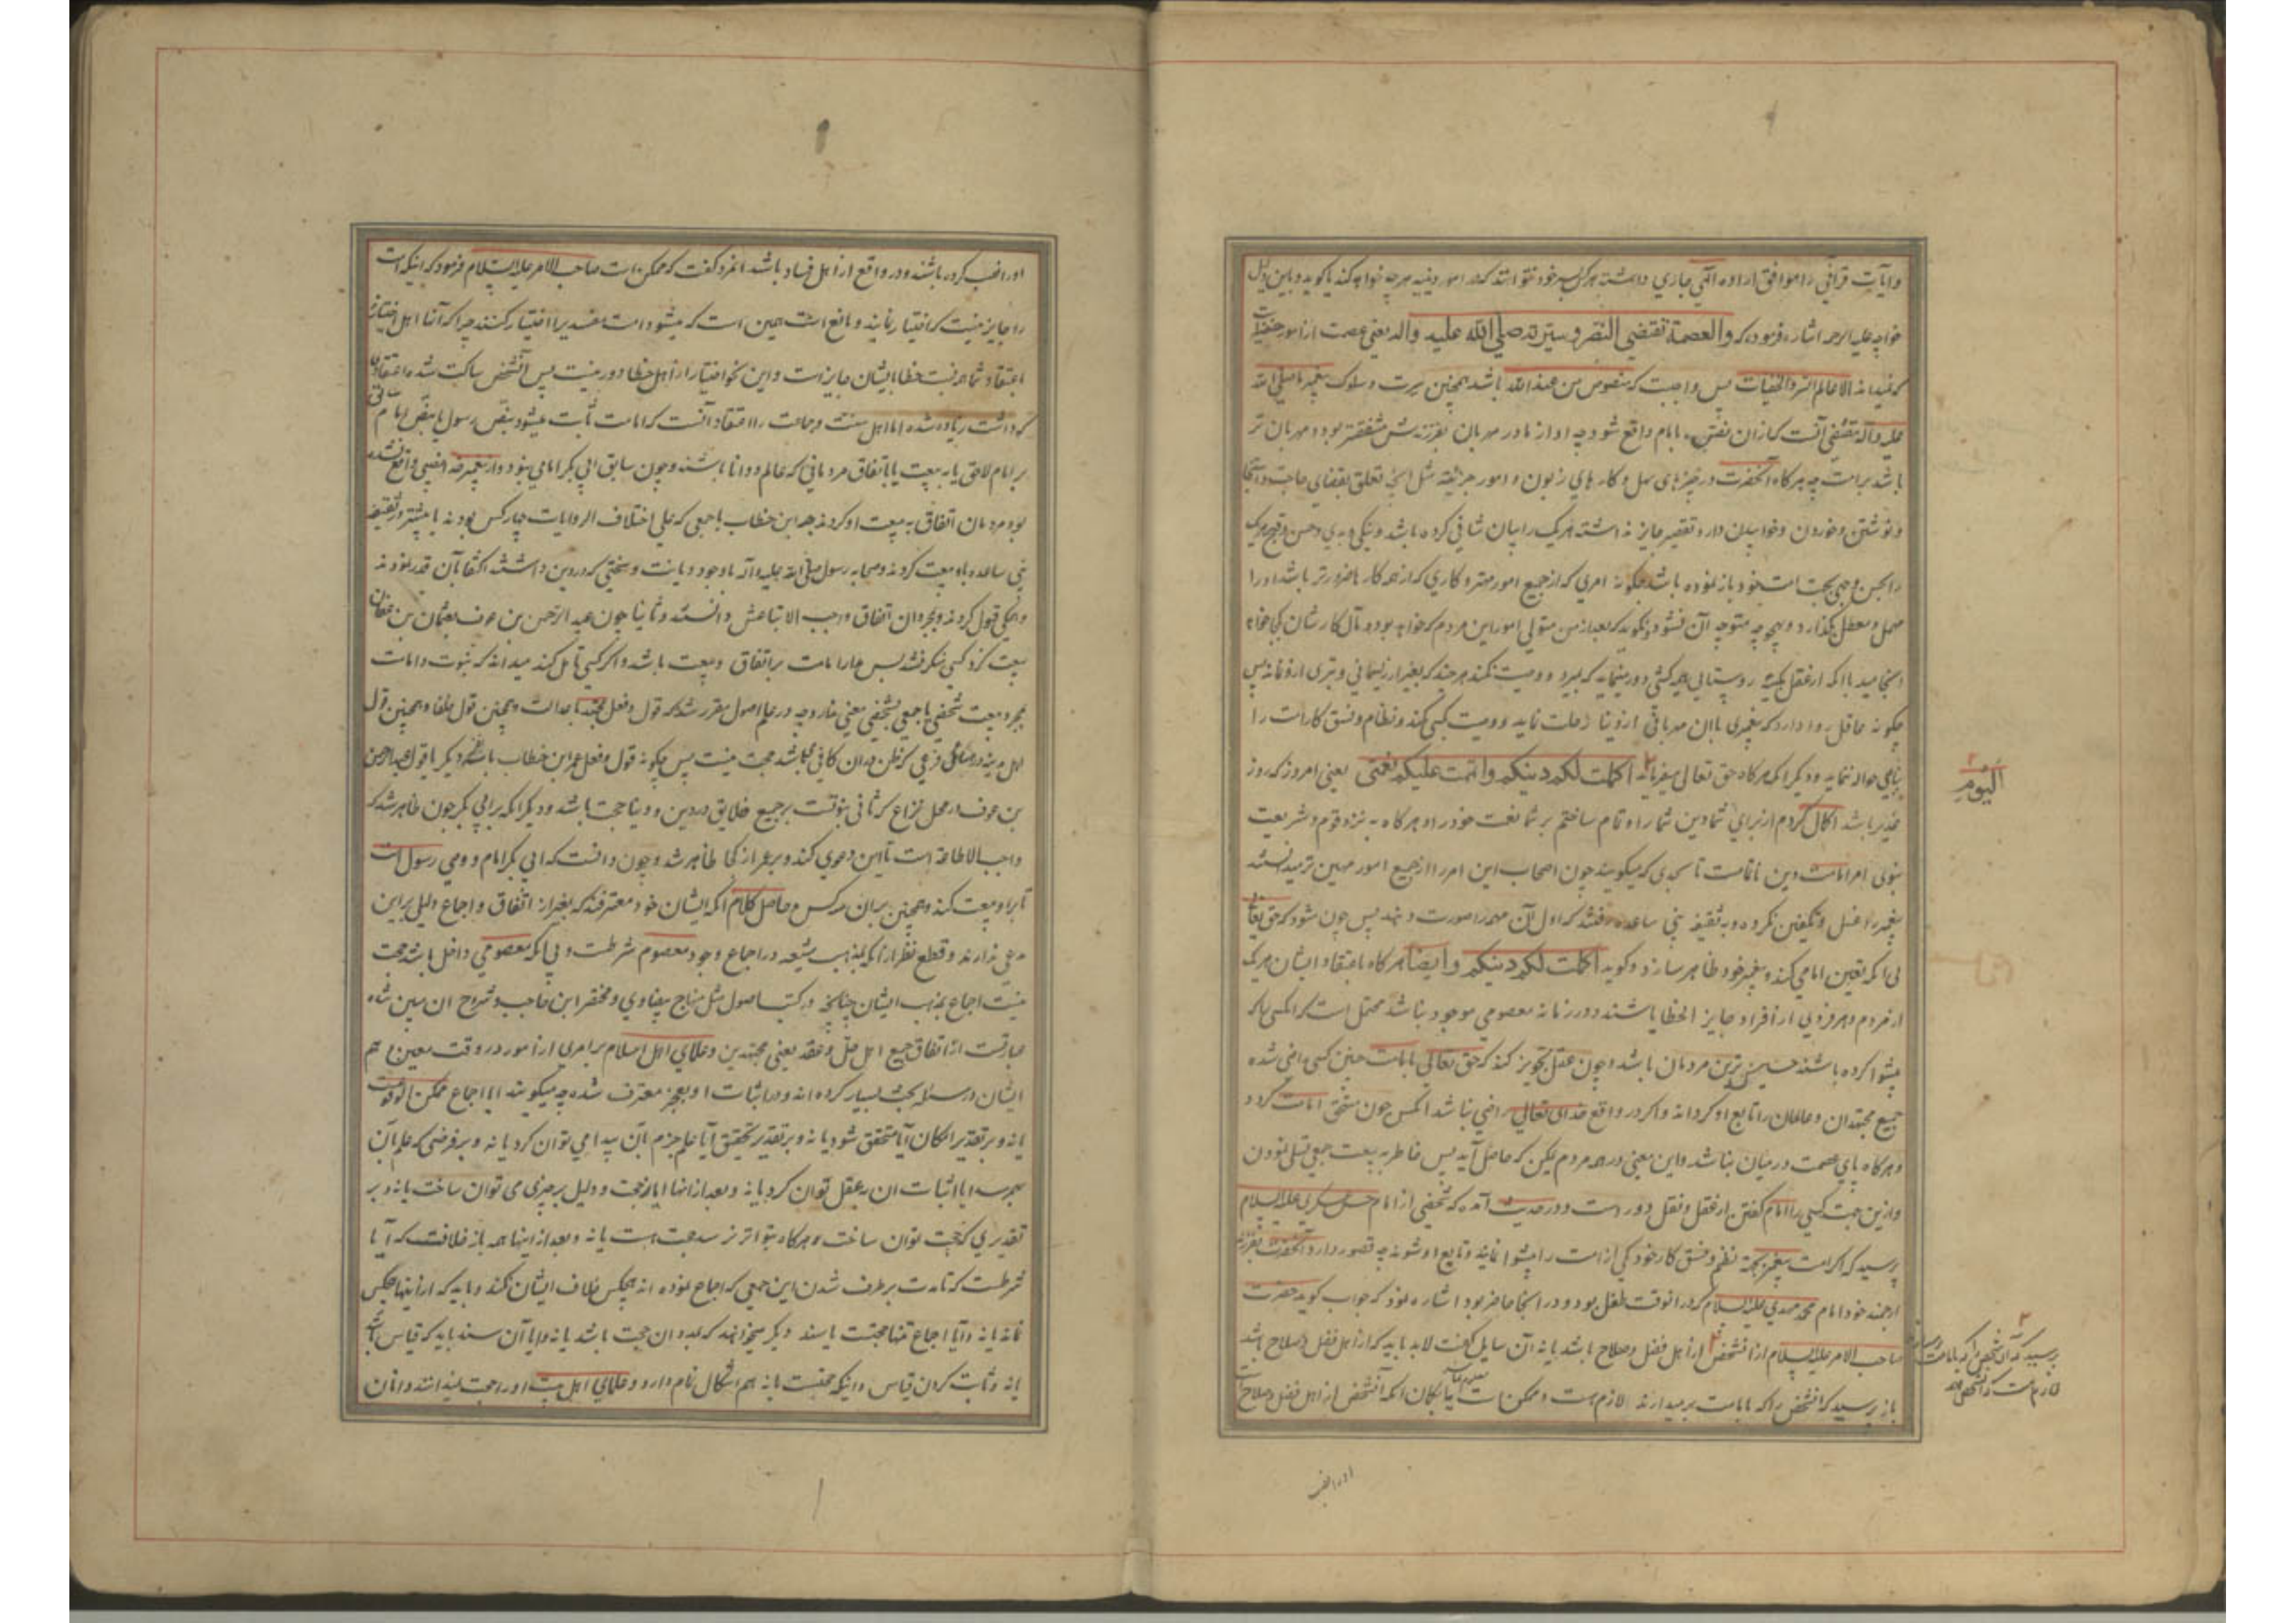 وآیات قرآنی را موافق اراده الهی جاری داشته هرکس بسر خود نتواند که در امور دینیه هرچه خواهد کند یا گوید و باین دلیل
خواجه علیه الرحمه اشاره فرموده که والعصمة تقتضی النص وسیرته صلی الله علیه وآله یعنی عصمت از امور خفیه است
که نمیداند الا عالم السر والخفیات پس واجبست که منصوص من عند الله باشد همچنین سیرت و سلوک پیغمبر ما صلی الله
علیه وآله مقتضی آنست که ازان نص بامام واقع شود چه او از مادر مهربان بفرزندش مشفقتر بود و مهربان تر
باشد برامت چه هرگاه آنحضرت در چیزهای سهل و کارهای زبون و امور جزئیه مثل آنچه تعلق بقضای حاجت و استنجا
و نوشتن و خوردن و خوابیدن دارد تقصیر جایز نداشته هریک را بیان شافی کرده باشد و نیکی و بدی و حسن و قبح هریک
را بجهت امت خود باز نموده باشد چگونه امری که از جمیع امور مهمتر و کاری که از همه کارها ضرورتر باشد او را
مهمل و معطل بگذارد و بهیچ وجه متوجه آن نشود و نگوید که بعد از من متولی امور این مردم که خواهد بود و مآل کارشان بکجا خواهد
انجامید با آنکه از عقل یک روستایی هم دور مینماید که بمیرد و وصیت نکند هرچند که بغیر از ریسمانی و تبری ازو نماند پس
چگونه عاقل روا دارد که پیغمبری باان مهربانی از دنیا رحلت نماید و وصیت بکسی نکند و نظام و نسق کار امت را
بکسی حواله ننماید و دیگر انکه هرگاه حق تعالی میفرماید اکملت لکم دینکم واتممت علیکم نعمتی یعنی امروز که روز
غدیر باشد اکمال کردم از برای شما دین شما را و تمام ساختم بر شما نعمت خود را و هرگاه به نزد قوم و شریعت
نبوی امر امامت دین ناتمامست تا بحدی که میگویند چون اصحاب این امر را از جمیع امور مهمتر میدانستند
پیغمبر را غسل و تکفین نکرده و به ثقیفه بنی ساعده رفتند که اول آن مهم را صورت دهند پس چون شود که حق تعالی
بی آنکه تعین امامی کند و پیغمبر خود ظاهر سازد و گوید اکملت لکم دینکم وایضا هرگاه باعتقاد ایشان هریک
از مردم و هر فردی از افراد جایز الخطا باشند و در زمانه معصومی موجود نباشد محتمل است که آنکسی را که
پیشوا کرده باشند خسیس ترین مردمان باشد و چون عقل تجویز کند که حق تعالی بامامت چنین کسی راضی شده
جمیع مجتهدان و عالمان را تابع او گرداند و اگر در واقع خدای تعالی راضی نباشد آنکس چون مستحق امامت گردد
و هرگاه پای عصمت درمیان نباشد و این معنی در همه مردم ممکن که حاصل آید پس خاطر به بیعت جمعی تسلی نمودن
و ازین جهت کسی را امام گفتن از عقل و نقل دور است و در حدیث آمده که شخصی از امام حسن عسکری علیه السلام
پرسید که اگر امت پیغمبر بجهة نظم و نسق کار خود یکی از امت را پیشوا نمایند و تابع او شوند چه قصور دارد آنحضرت بفرزند
ارجمند خود امام محمد مهدی علیه السلام که در انوقت طفل بود و در انجا حاضر بود اشاره نمود که جواب گوید حضرت
صاحب الامر علیه السلام از آنشخص از اهل فضل و صلاح باشد یا نه آن سایل گفت لابد باید که از اهل فضل و صلاح باشد
باز پرسید که آنشخص را که بامامت برمیدارند لازم است و ممکن است بگمان آنکه آنشخص از اهل فضل و صلاح است
الیوم
پرسید که آن شخص را که بامامت
لازم است که آنشخص
او را نصب
او را نصب کرده باشند و در واقع از اهل فساد باشد انمرد گفت که ممکن است صاحب الامر علیه السلام فرمود که اینکه امت
را جایز نیست که اختیار نمایند و مانع است همین است که میشود امت مفسدی را اختیار کنند چرا که آنها اهل اختیارند
باعتقاد شما همه نسبت خطا بایشان جایز است و این نحو اختیار از اهل خطا دور نیست پس آنشخص ساکت شد و اعتقادی
که داشت زیاده شد اما اهل سنت و جماعت را اعتقاد آنست که امامت ثابت میشود بنص رسول یا بنص امام سابق
بر امام لاحق یا به بیعت یا باتفاق مردمانی که عالم و دانا باشند و چون سابق ابی بکر امامی نبود و از پیغمبر هم نصی واقع نشده
بود مردمان اتفاق به بیعت او کردند چه ابن خطاب با جمعی که علی اختلاف الروایات چهار کس بودند یا بیشتر در ثقیفه
بنی ساعده باو بیعت کردند و صحابه رسول صلی الله علیه وآله با وجود دیانت و سختی که در دین داشتند اکتفا بآن قدر نمودند
و همگی قبول کردند و بمجرد ان اتفاق واجب الاتباعش دانستند و ثانیا چون عبد الرحمن بن عوف بعثمان بن عفان
بیعت کرد کسی منکر نشد پس مدار امامت بر اتفاق و بیعت باشد و اگر کسی تامل کند میداند که ثبوت امامت
بمجرد بیعت شخصی یا جمعی بشخصی معنی ندارد چه در علم اصول مقرر شده که قول و فعل مجتهد با عدالت و همچنین قول خلفا و همچنین قول
اهل مدینه در مسائل فرعی که ظن دران کافی میباشد حجت نیست پس چگونه قول و فعل عمر ابن خطاب یا قول عبد الرحمن
بن عوف در محل نزاع که ثانی نبوتست بر جمیع خلایق در دین و دنیا حجت باشد و دیگر انکه بر ابی بکر چون ظاهر شد که
واجب الاطاعة است تا این دعوی کند و بر عمر از کجا ظاهر شد و چون دانست که ابی بکر امام و وصی رسول است
تا با او بیعت کند و همچنین بر ان هر کس و حاصل کلام انکه ایشان خود معترفند که بغیر از اتفاق و اجماع دلیلی بر این
مدعی ندارند و قطع نظر از آنکه بمذهب شیعه در اجماع وجود معصوم شرطست و بی آنکه معصومی داخل باشد حجت
نیست اجماع بمذهب ایشان چنانچه در کتب اصول مثل منهاج بیضاوی و مختصر ابن حاجب و شروح ان مبین شده
عبارتست از اتفاق جمیع اهل حل و عقد یعنی مجتهدین و علمای اهل اسلام بر امری از امور در وقت معین و هم
ایشان در مسئله بحث بسیار کرده اند و در اثبات او بعجز معترف شده چه میگویند ایا اجماع ممکن الوقوعست
یا نه و بر تقدیر امکان آیا متحقق شود یا نه و بر تقدیر تحقیق آیا علم جزم بآن پیدا می توان کرد یا نه و بر فرضی که علم بآن
بهم رسد ایا اثبات ان بعقل توان کرد یا نه و بعد از اینها ایا حجت و دلیل بر چیزی می توان ساخت یا نه و بر
تقدیری که حجت توان ساخت هرگاه بتواتر نرسد حجت است یا نه و بعد از اینها همه باز خلافست که آیا
شرطست که تا مدت برطرف شدن این جمعی که اجماع نموده اند هیچکس خلاف ایشان نکند و باید که از اینها هیچکس
نماند یا نه و آیا اجماع تنها حجتست یا سند دیگر میخواهد که بدون ان حجت باشد یا نه و ایا آن سند باید که قیاس باشد
یا نه و ثابت کردن قیاس و اینکه حجتست یا نه هم اشکال تمام دارد و علمای اهل بیت او را حجت نمیدانند و انان